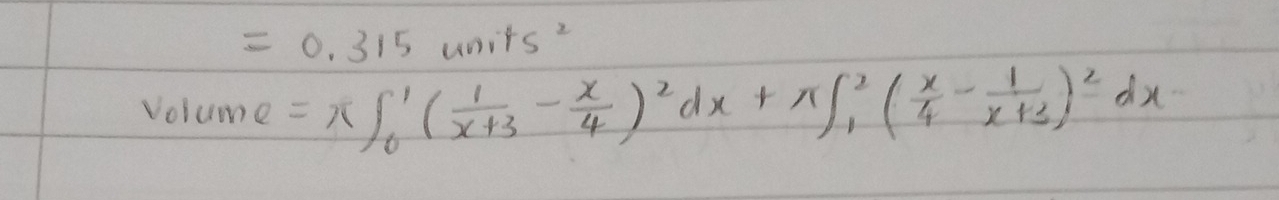 = 0.315 units²
Volume = π∫₀¹ (1/(x+3) − x/4)² dx + π∫₁² (x/4 − 1/(x+3))² dx